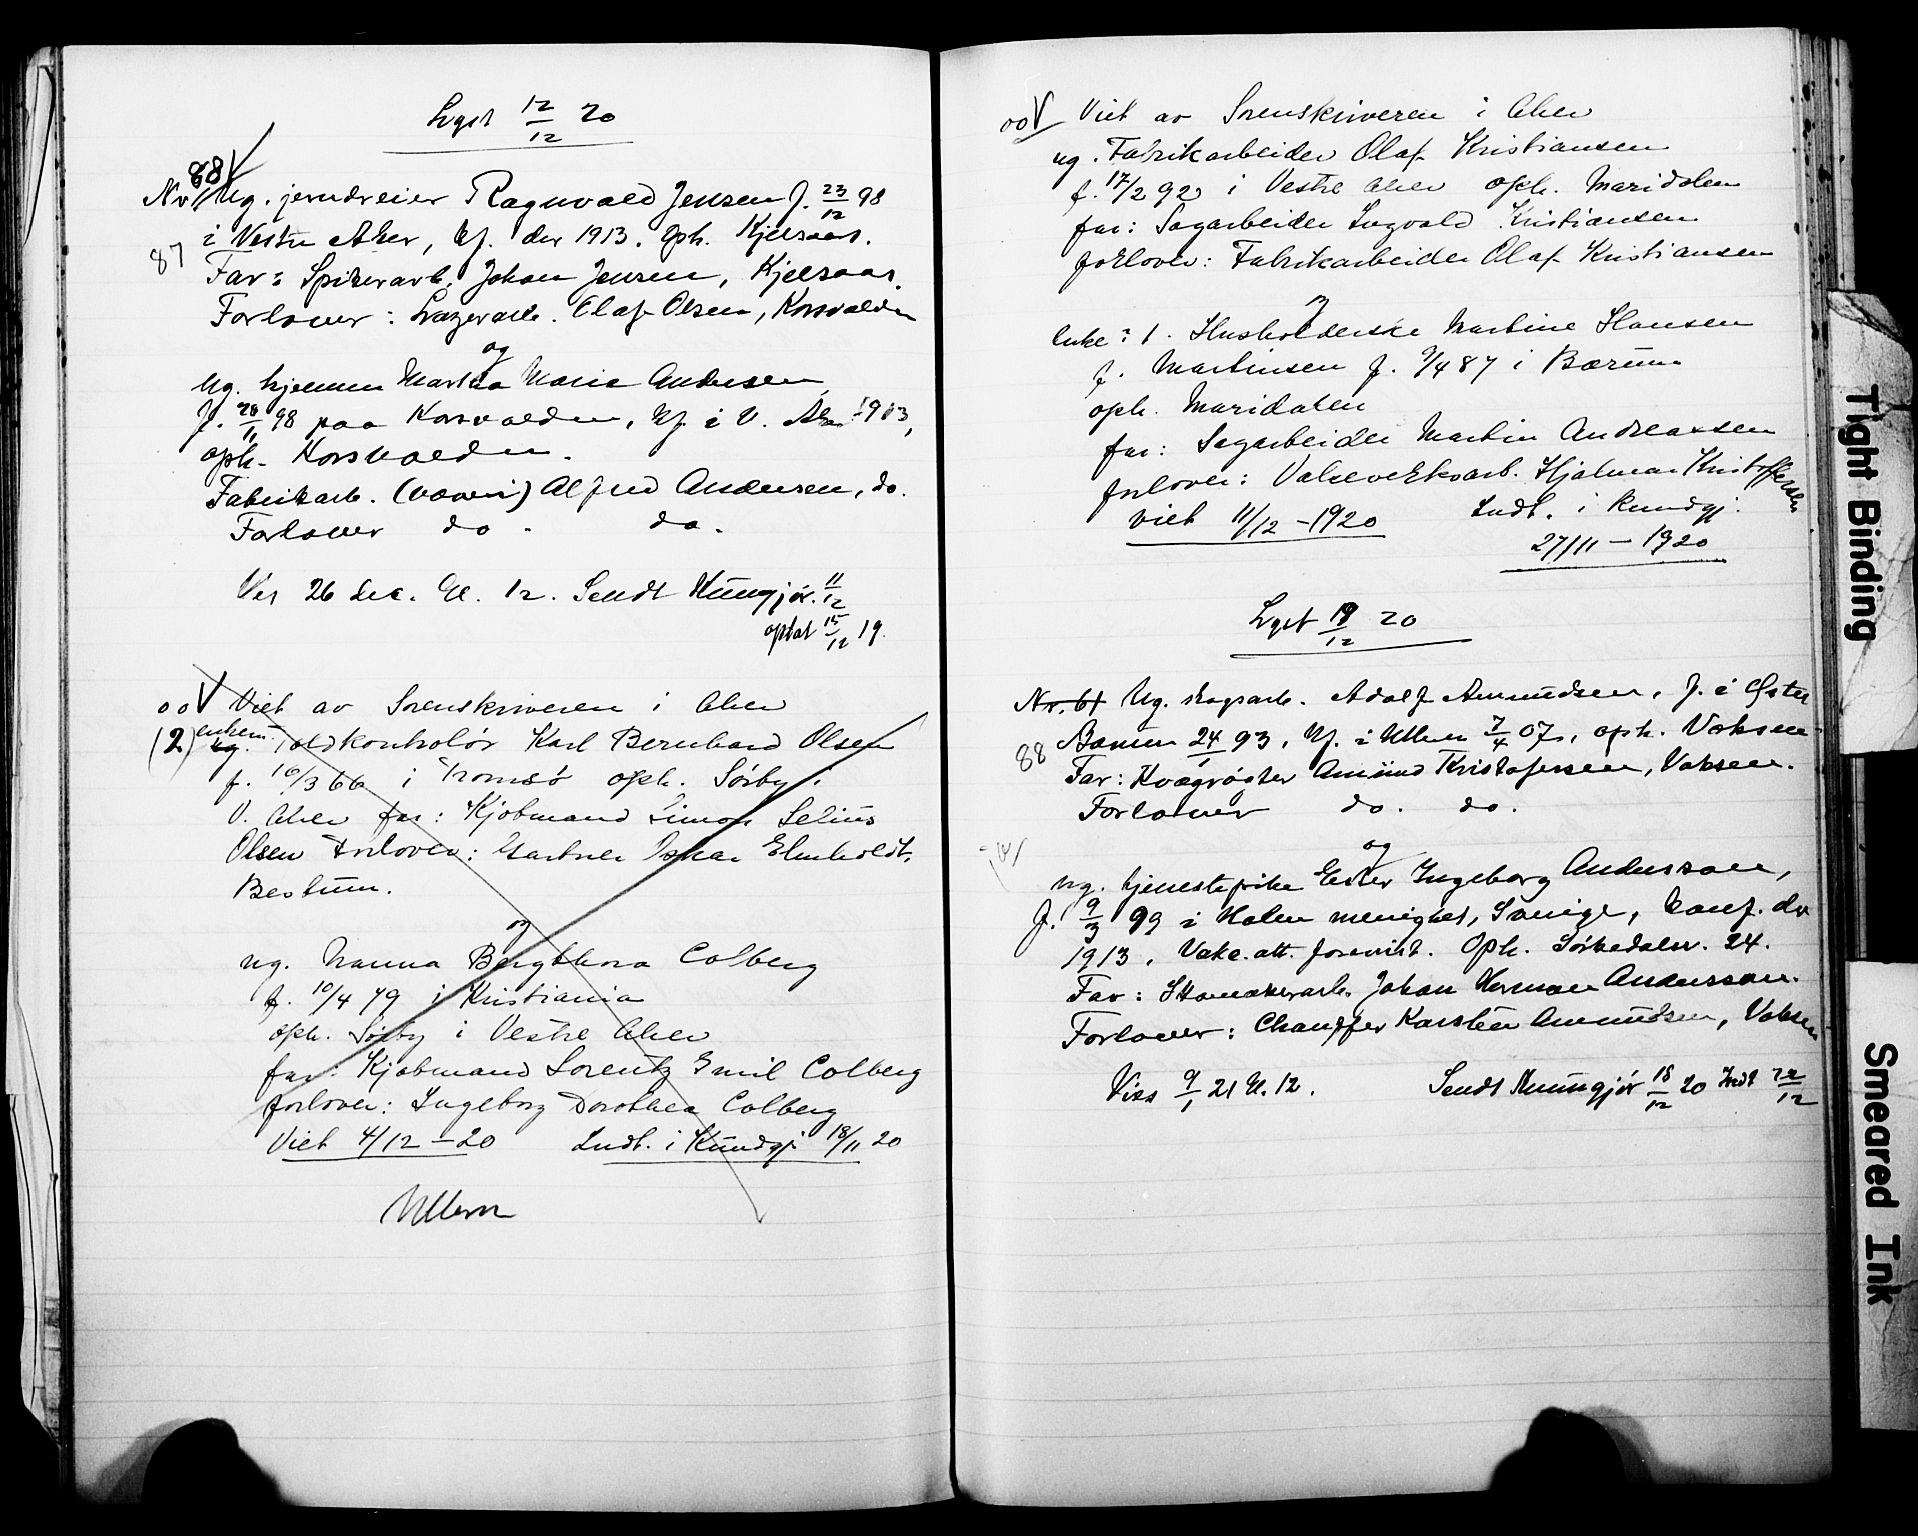 Lyst 12/12 20
88 V
Nr Ug. jerndreier Ragnvald Jensen f. 23/12 98
87
i Vestre Aker, kf. der 1913. Oph. Kjelsaas.
Far: Spikerarb. Johan Jensen, Kjelsaas.
Forlover: Lagerarb. Olaf Olsen, Korsvolden
og
ug. hjemmev Martha Marie Andersen,
f. 28/11 98 paa Korsvolden, kf. i V. Aker 1913,
oph. Korsvolden.
Fabrikarb. (væveri) Alfred Andersen, do.
Forlover do. do.
Vies 26 des. kl. 12. Sendt Kungjør. 11/12
optat 15/12 19.
oo V Viet av Sorenskriveren i Aker
(2) enkem. ug. Toldkontrolør Karl Bernhard Olsen
f. 16/3 66 i Tromsö oph. Sörby i
V. Aker far: Kjöbmand Simon Selius
Olsen Forlover: Gartner Oskar Elmholdt,
Bestum.
og
ug. Nanna Bergthora Colberg
f. 10/4 79 i Kristiania
oph. Sörby i Vestre Aker
far: Kjöbmand Lorentz Emil Colberg
forlover: Ingeborg Dorothea Colberg
Viet 4/12 – 20 Indt. i Kundgj. 18/11 20
Ullern
oo V Viet av Sorenskriveren i Aker
ug. Fabrikarbeider Olaf Kristiansen
f. 17/2 92 i Vestre Aker oph. Maridalen
far: Sagarbeider Ingvald Kristiansen
forlover: Fabrikarbeider Olaf Kristiansen
og
enke: 1. Husholderske Martine Hansen
f. Martinsen f. 9/4 87 i Bærum
oph. Maridalen
far: Sagarbeider Martin Andreassen
forlover: Valseverksarb. Hjalmar Kristoffersen
viet 11/12 – 1920 Indt. i kundgj.
27/11 – 1920
Lyst 19/12 20
Nr. 61 Ug. skogsarb. Adolf Amundsen, f. i Østre
88
Bærum 24/1 93, kf. i Ullern 7/4 07, oph. Voksen
Far: Kvægrögter Amund Kristofersen, Voksen.
Forlover do. do.
og
ug. tjenestepike Ester Ingeborg Andersson,
f. 9/3 99 i Holen menighet, Sverige, konf. der
1913, Vakc. att. forevist. Oph. Sörkedalsv. 24.
Far: Skomakerarb. Johan Herman Andersson.
Forlover: Chauffør Karsten Amundsen, Voksen
Vies 9/1 21 kl. 12. Sendt Kunngjör 18/12 20 Indt 22/12
Tight Binding
Smeared Ink